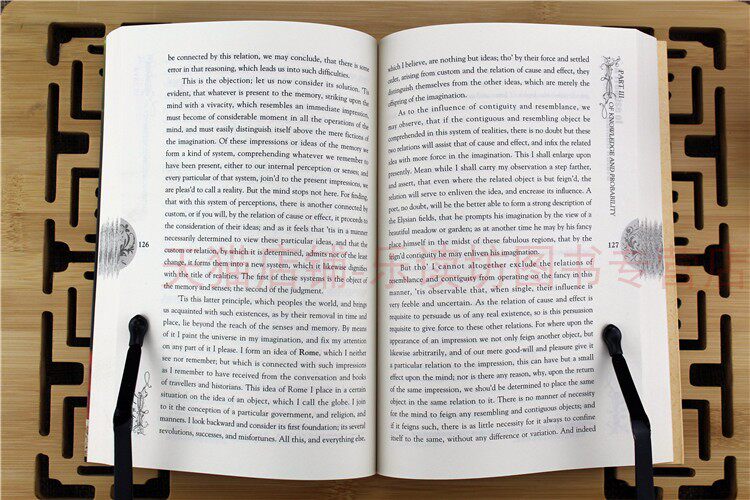 be connected by this relation, we may conclude, that there is some
error in that reasoning, which leads us into such difficulties.
This is the objection; let us now consider its solution. 'Tis
evident, that whatever is present to the memory, striking upon the
mind with a vivacity, which resembles an immediate impression,
must become of considerable moment in all the operations of the
mind, and must easily distinguish itself above the mere fictions of
the imagination. Of these impressions or ideas of the memory we
form a kind of system, comprehending whatever we remember to
have been present, either to our internal perception or senses; and
every particular of that system, join'd to the present impressions, we
are pleas'd to call a reality. But the mind stops not here. For finding,
that with this system of perceptions, there is another connected by
custom, or if you will, by the relation of cause or effect, it proceeds to
the consideration of their ideas; and as it feels that 'tis in a manner
necessarily determined to view these particular ideas, and that the
custom or relation, by which it is determined, admits not of the least
change, it forms them into a new system, which it likewise dignifies
with the title of realities. The first of these systems is the object of
the memory and senses; the second of the judgment.
'Tis this latter principle, which peoples the world, and brings
us acquainted with such existences, as by their removal in time and
place, lie beyond the reach of the senses and memory. By means
of it I paint the universe in my imagination, and fix my attention
on any part of it I please. I form an idea of Rome, which I neither
see nor remember; but which is connected with such impressions
as I remember to have received from the conversation and books
of travellers and historians. This idea of Rome I place in a certain
situation on the idea of an object, which I call the globe. I join to
it the conception of a particular government, and religion, and
manners. I look backward and consider its first foundation; its several
revolutions, successes, and misfortunes. All this, and everything else,
126
which I believe, are nothing but ideas; tho' by their force and settled
order, arising from custom and the relation of cause and effect, they
distinguish themselves from the other ideas, which are merely the
offspring of the imagination.
As to the influence of contiguity and resemblance, we
may observe, that if the contiguous and resembling object be
comprehended in this system of realities, there is no doubt but these
two relations will assist that of cause and effect, and infix the related
idea with more force in the imagination. This I shall enlarge upon
presently. Mean while I shall carry my observation a step farther,
and assert, that even where the related object is but feign'd, the
relation will serve to enliven the idea, and encrease its influence. A
poet, no doubt, will be the better able to form a strong description of
the Elysian fields, that he prompts his imagination by the view of a
beautiful meadow or garden; as at another time he may by his fancy
place himself in the midst of these fabulous regions, that by the
feign'd contiguity he may enliven his imagination.
But tho' I cannot altogether exclude the relations of
resemblance and contiguity from operating on the fancy in this
manner, 'tis observable that, when single, their influence is
very feeble and uncertain. As the relation of cause and effect is
requisite to persuade us of any real existence, so is this persuasion
requisite to give force to these other relations. For where upon the
appearance of an impression we not only feign another object, but
likewise arbitrarily, and of our mere good-will and pleasure give it
a particular relation to the impression, this can have but a small
effect upon the mind; nor is there any reason, why, upon the return
of the same impression, we shou'd be determined to place the same
object in the same relation to it. There is no manner of necessity
for the mind to feign any resembling and contiguous objects; and
if it feigns such, there is as little necessity for it always to confine
itself to the same, without any difference or variation. And indeed
PART III
OF KNOWLEDGE AND PROBABILITY
127